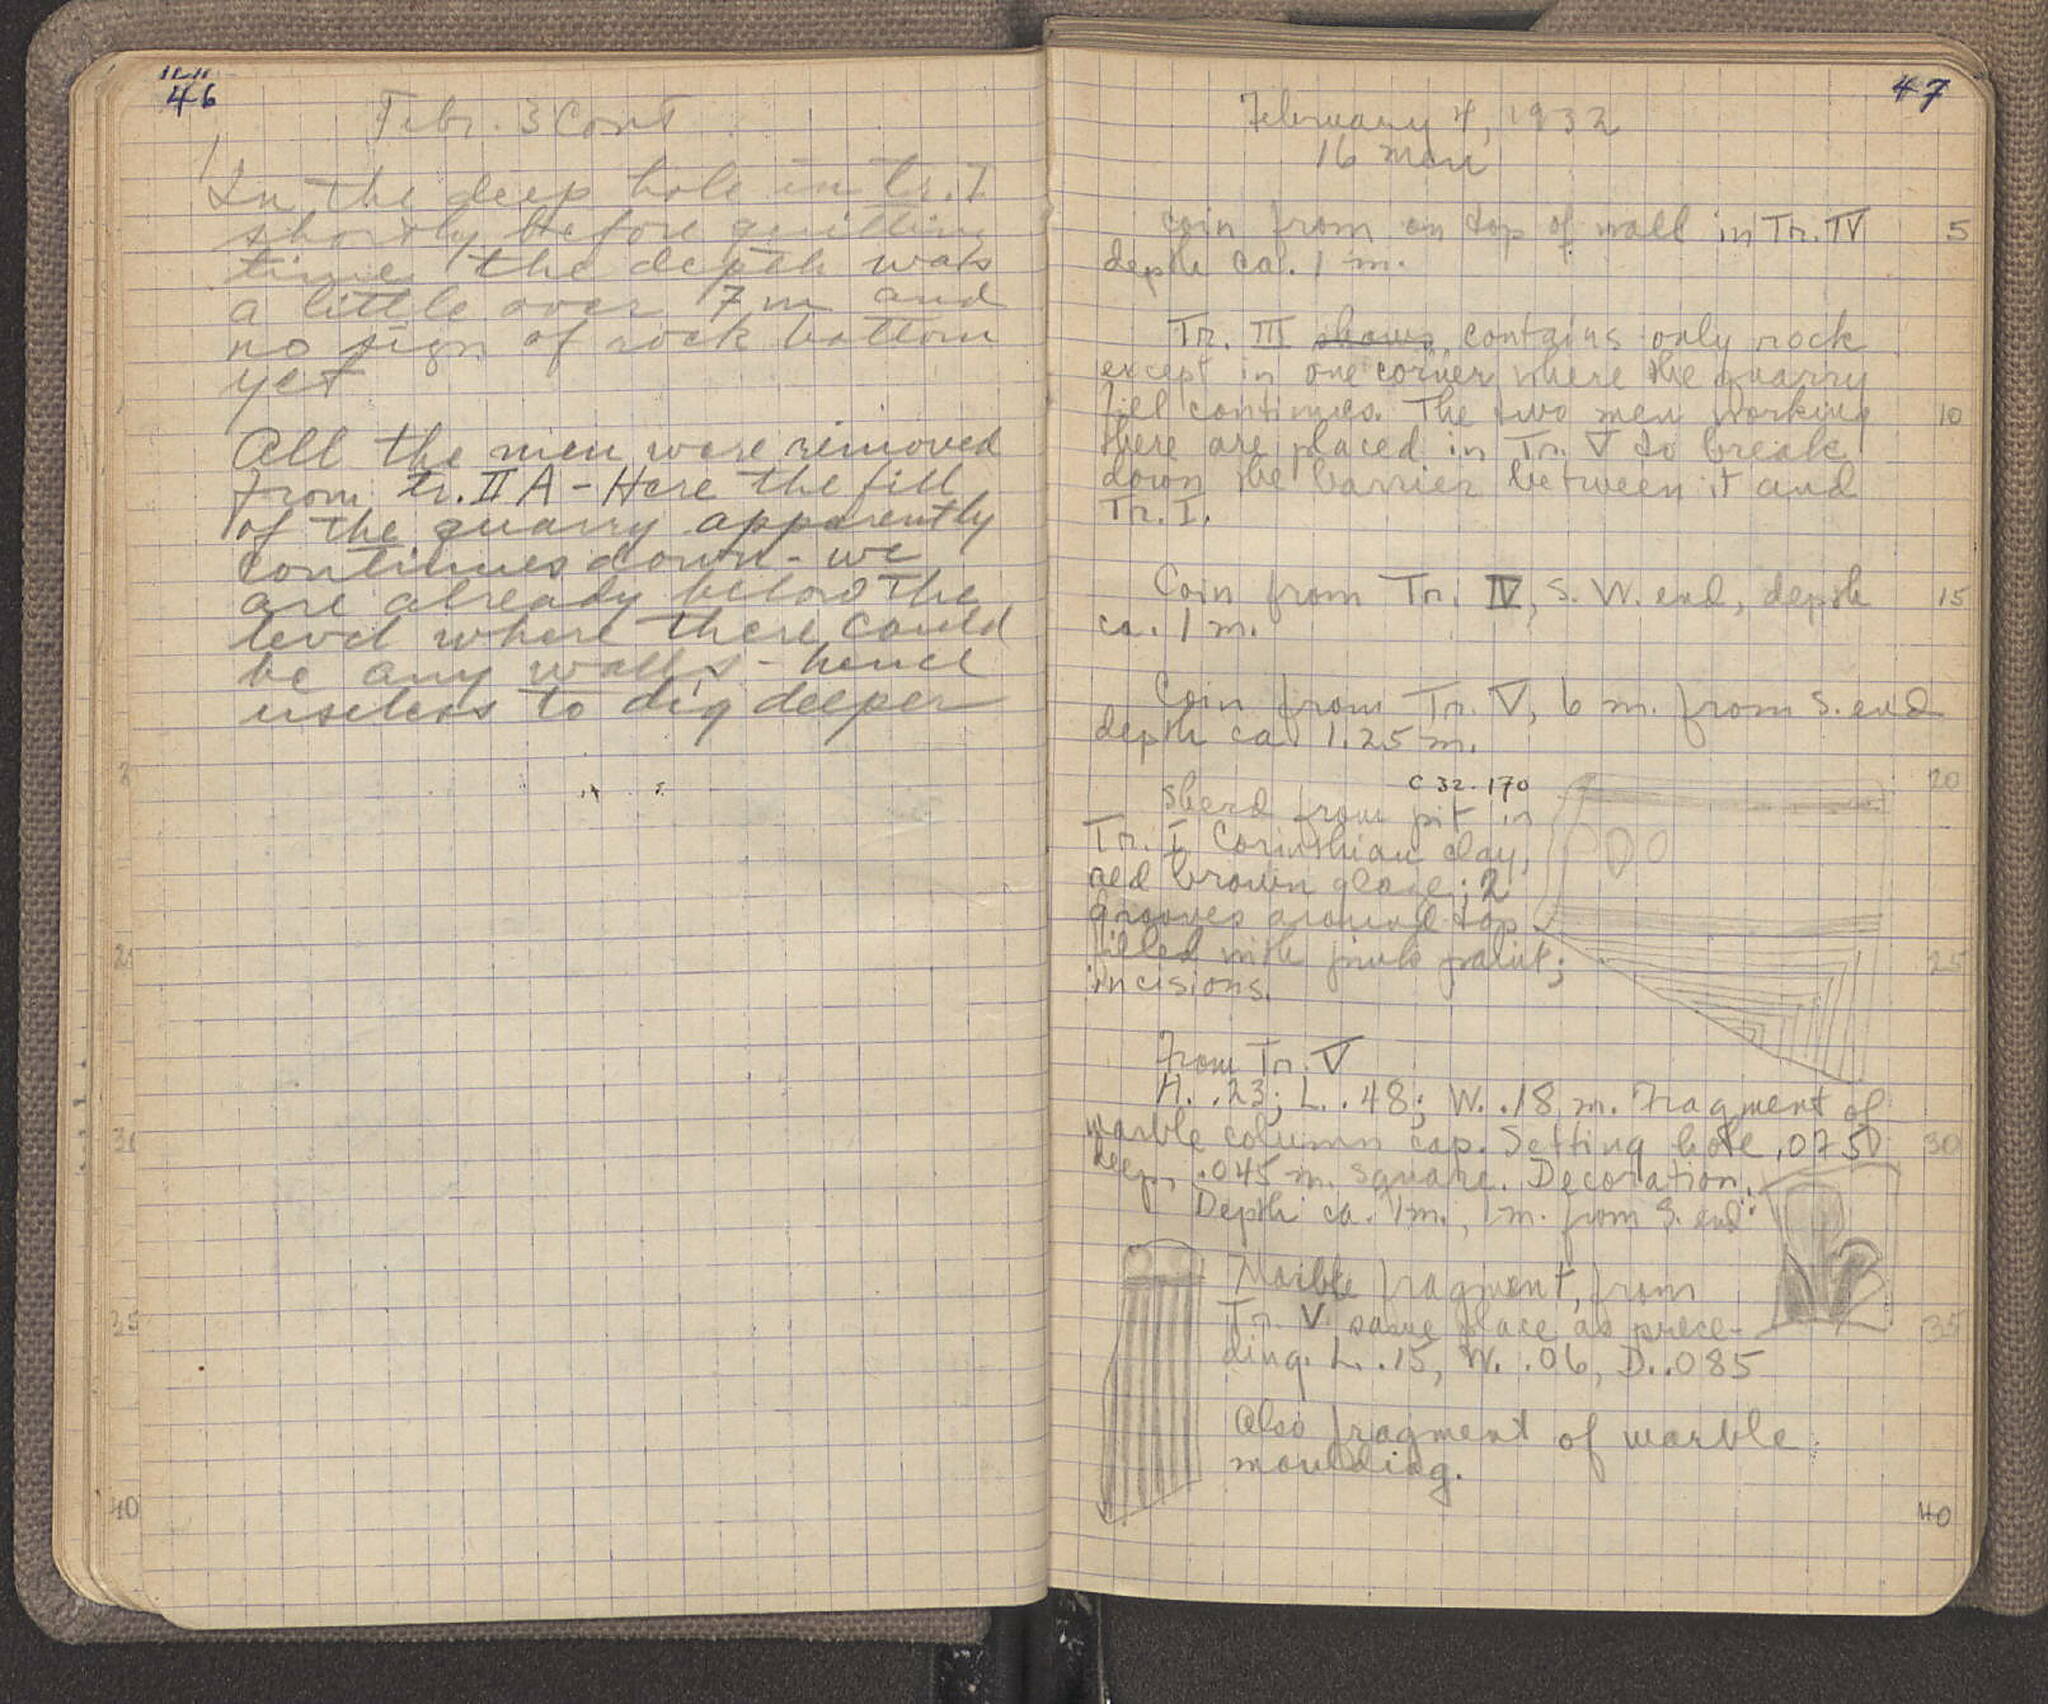 46
Febr. 3 Cont
In the deep hole in tr. I
shortly before quitting
time the depth was
a little over 7 m and
no sign of rock bottom
yet
All the men were removed
from tr. II A - Here the fill
of the quarry apparently
continues down - we
are already below the
level where there could
be any walls - hence
useless to dig deeper
25
30
35
40
47
February 4, 1932
16 men
Coin from on top of wall in Tr. IV
5
depth ca. 1 m.
Tr. III shows contains only rock
except in one corner where the quarry
fill continues. The two men working
10
there are placed in Tr. V to break
down the barrier between it and
Tr. I.
Coin from Tr. IV, S. W. end, depth
15
ca. 1 m.
Coin from Tr. V, 6 m. from S. end
depth ca. 1.25 m.
20
C 32. 170
Sherd from pit in
Tr. I Corinthian clay,
red brown glaze; 2
grooves around top
filled with pink paint;
25
incisions.
From Tr. V
H. .23; L. .48; W. .18 m. Fragment of
marble column cap. Setting hole .075
30
deep, .045 m. square. Decoration.
Depth ca. 1m., 1m. from S. end.
Marble fragment, from
Tr. V same place as prece-
35
ding. L. .15, W. .06, D. .085
Also fragment of marble
moulding.
40